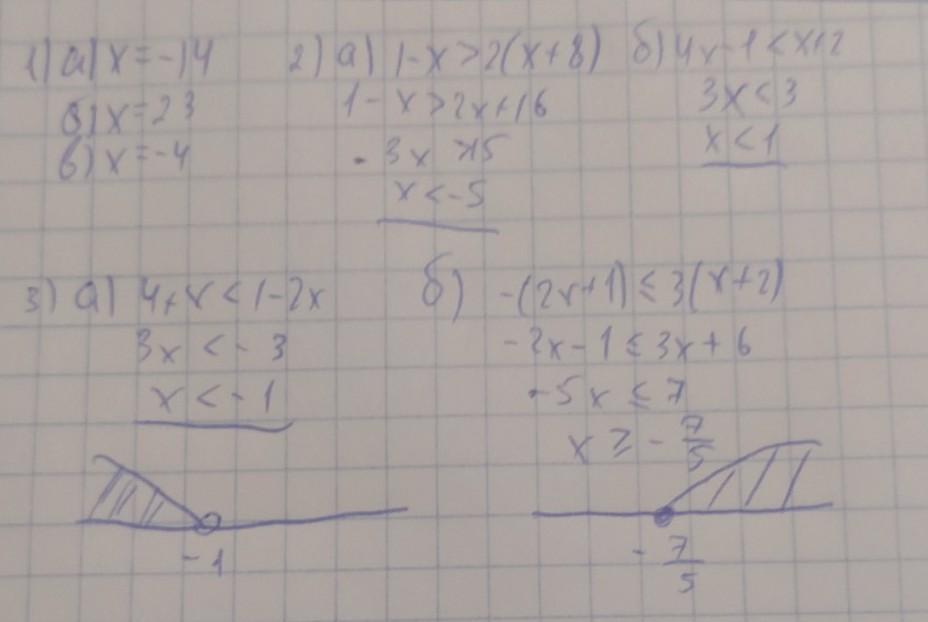 1) а) x = -14
б) x = 23
в) x = -4
2) а) 1 - x > 2(x + 8)
1 - x > 2x + 16
- 3x > 15
x < -5
б) 4x - 1 < x + 2
3x < 3
x < 1
3) а) 4 + x < 1 - 2x
3x < - 3
x < - 1
-1
б) -(2x + 1) ≤ 3(x + 2)
-2x - 1 ≤ 3x + 6
-5x ≤ 7
x ≥ - 7/5
- 7/5